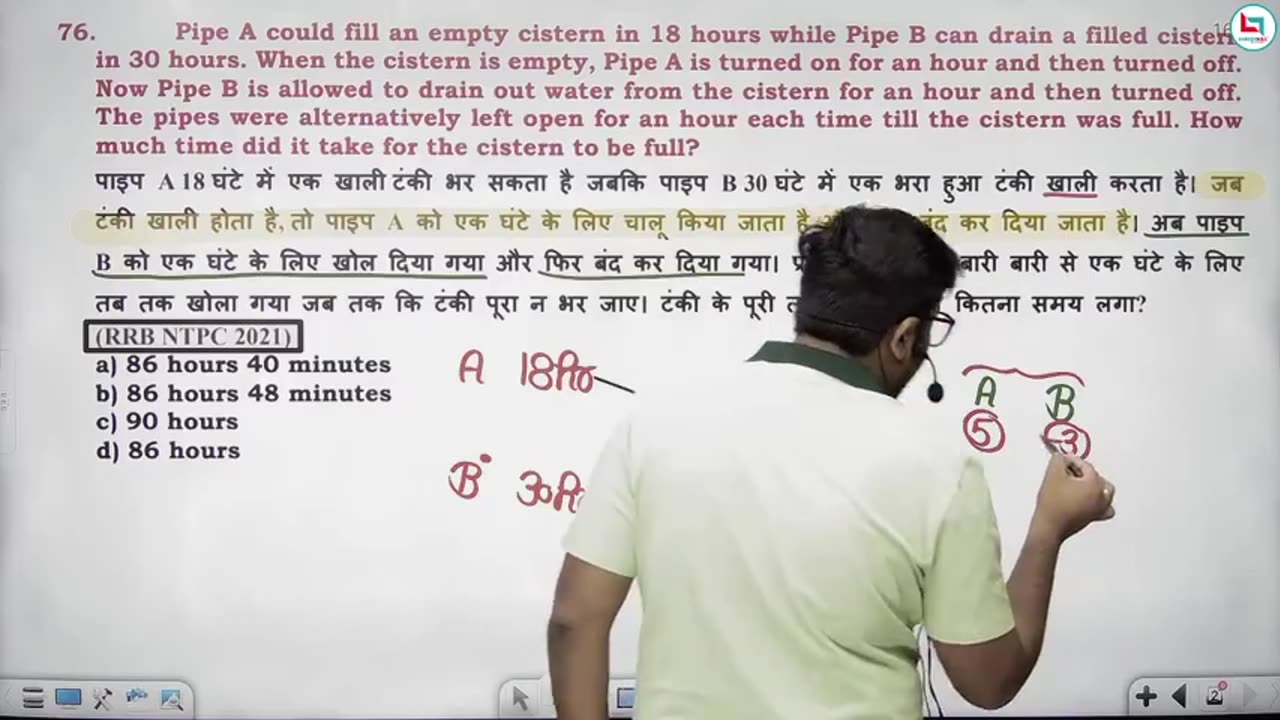 76. Pipe A could fill an empty cistern in 18 hours while Pipe B can drain a filled cistern
in 30 hours. When the cistern is empty, Pipe A is turned on for an hour and then turned off.
Now Pipe B is allowed to drain out water from the cistern for an hour and then turned off.
The pipes were alternatively left open for an hour each time till the cistern was full. How
much time did it take for the cistern to be full?
पाइप A 18 घंटे में एक खाली टंकी भर सकता है जबकि पाइप B 30 घंटे में एक भरा हुआ टंकी खाली करता है। जब
टंकी खाली होता है, तो पाइप A को एक घंटे के लिए चालू किया जाता है बंद कर दिया जाता है। अब पाइप
B को एक घंटे के लिए खोल दिया गया और फिर बंद कर दिया गया। बारी बारी से एक घंटे के लिए
तब तक खोला गया जब तक कि टंकी पूरा न भर जाए। टंकी के पूरी कितना समय लगा?
(RRB NTPC 2021)
a) 86 hours 40 minutes
b) 86 hours 48 minutes
c) 90 hours
d) 86 hours
A 18
B 30
A B
5 -3
2